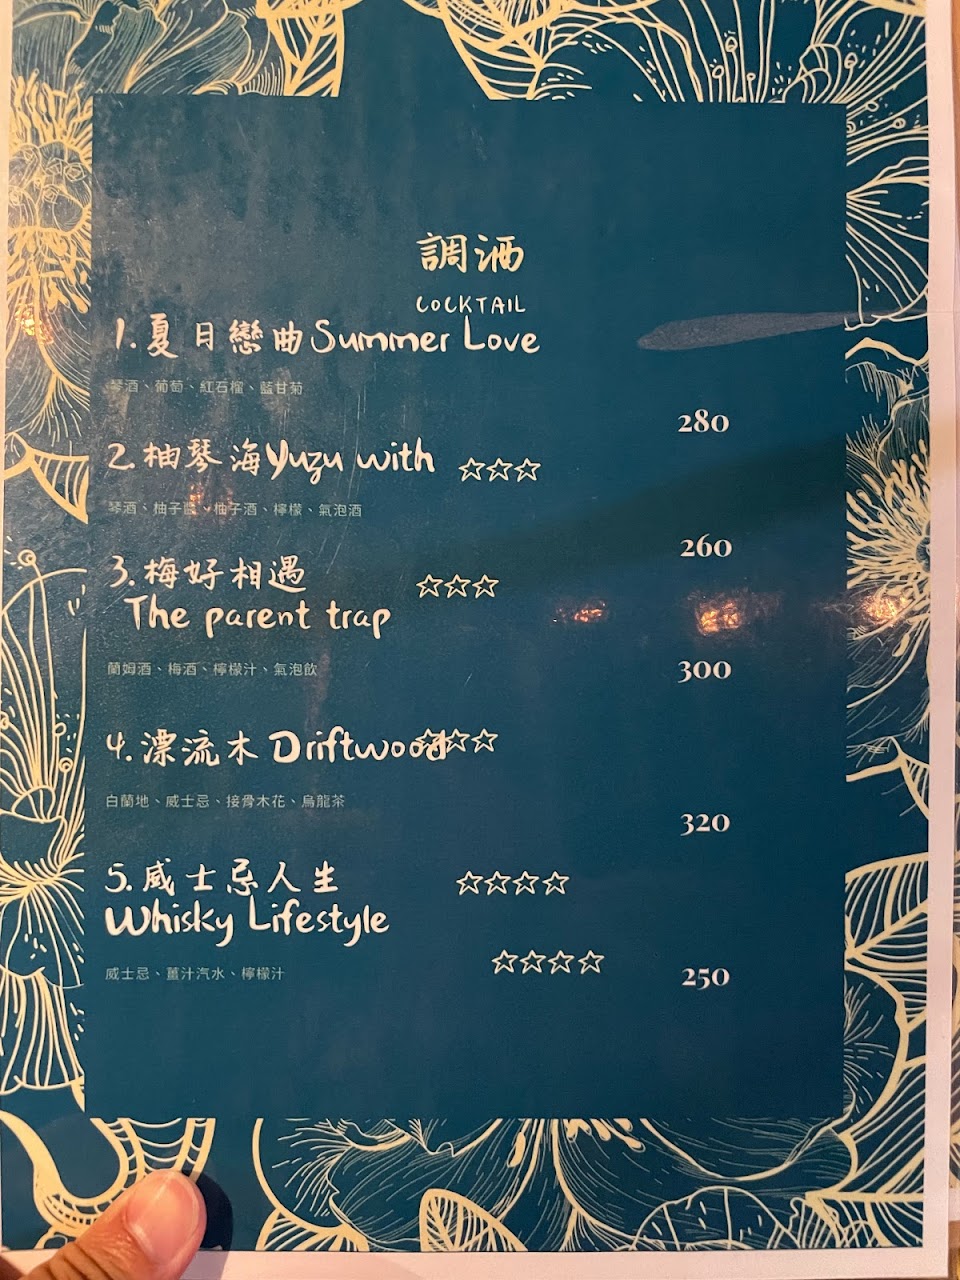 調酒
COCKTAIL
1.夏日戀曲Summer Love
琴酒、葡萄、紅石榴、藍甘菊
280
2.柚琴海Yuzu with ☆☆☆
琴酒、柚子醬、柚子酒、檸檬、氣泡酒
260
3.梅好相遇 ☆☆☆
The parent trap
蘭姆酒、梅酒、檸檬汁、氣泡飲
300
4.漂流木Driftwood ☆☆☆
白蘭地、威士忌、接骨木花、烏龍茶
320
5.威士忌人生 ☆☆☆☆
Whisky Lifestyle
☆☆☆☆
威士忌、薑汁汽水、檸檬汁 250